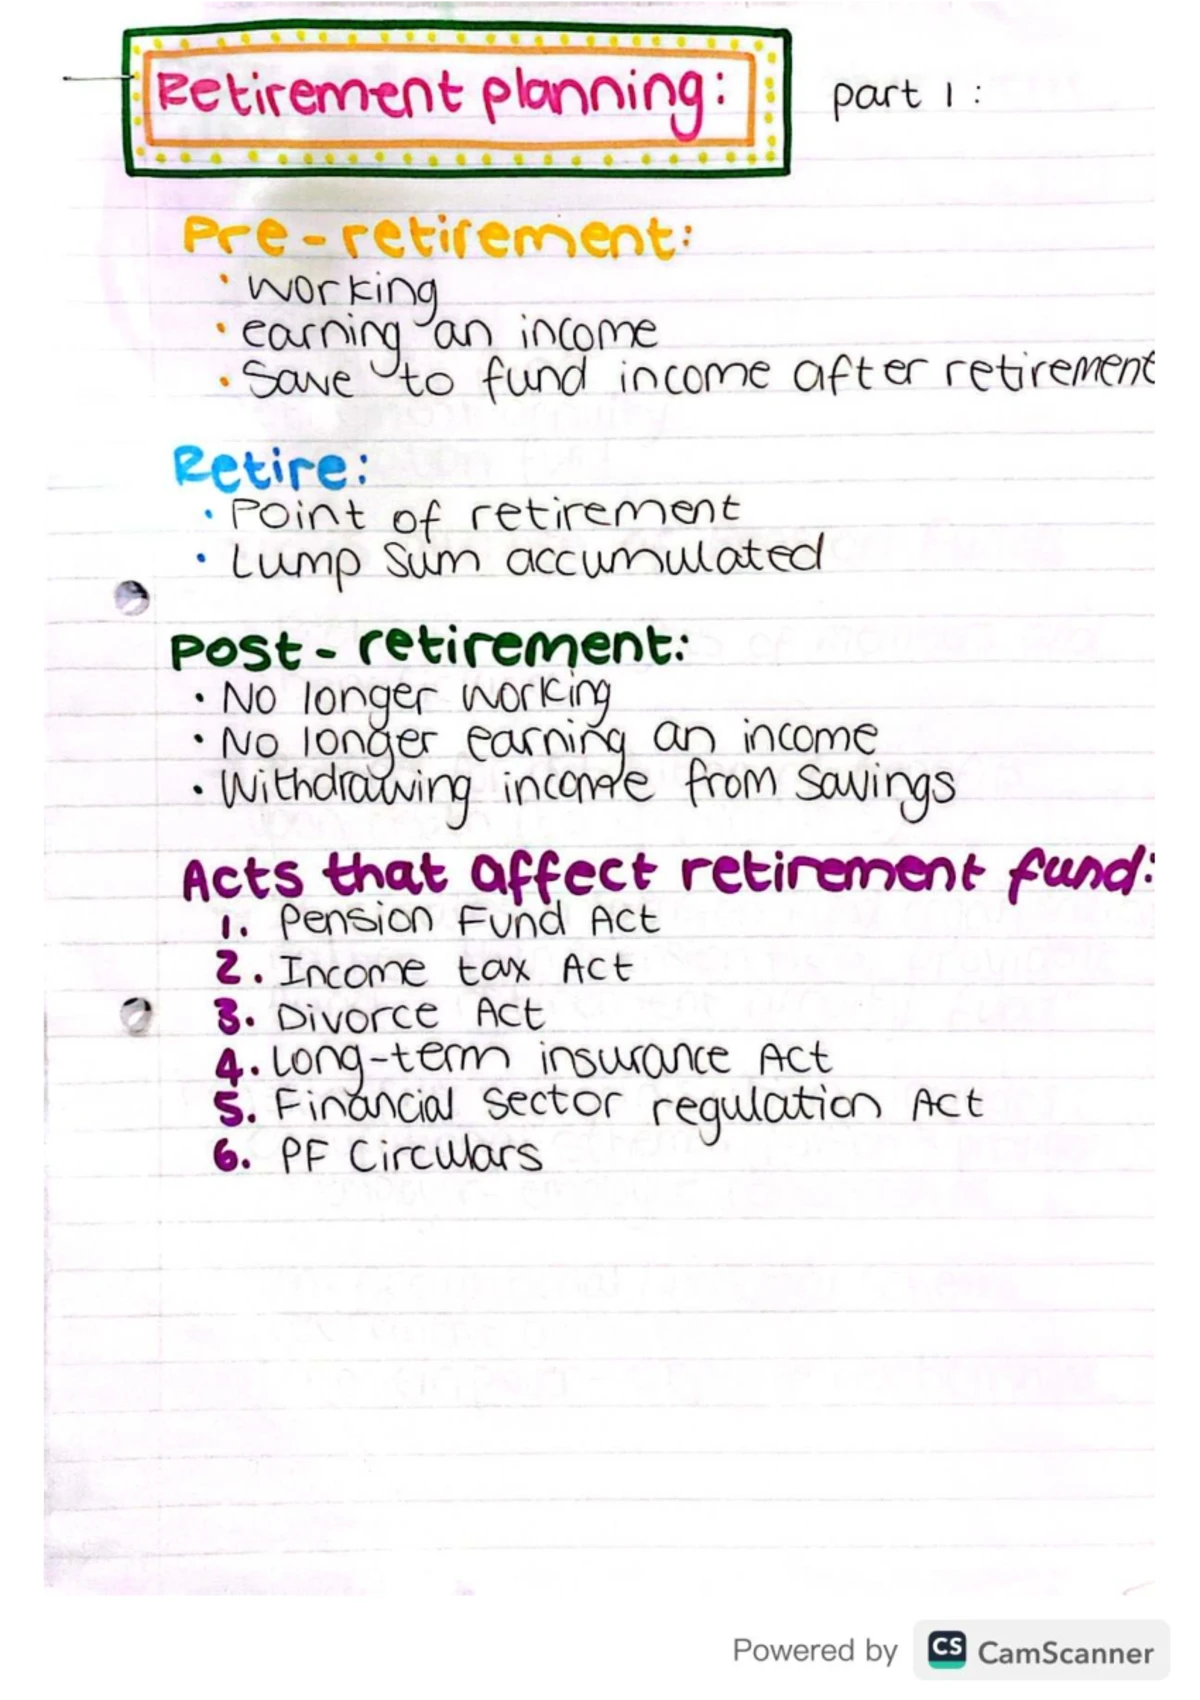 Retirement planning: part 1:
Pre-retirement:
• working
• earning an income
• Save to fund income after retirement
Retire:
• Point of retirement
• Lump Sum accumulated
Post-retirement:
• No longer working
• No longer earning an income
• Withdrawing income from Savings
Acts that affect retirement fund:
1. Pension Fund Act
2. Income tax Act
3. Divorce Act
4. Long-term insurance Act
5. Financial Sector regulation Act
6. PF Circulars
Powered by CS CamScanner